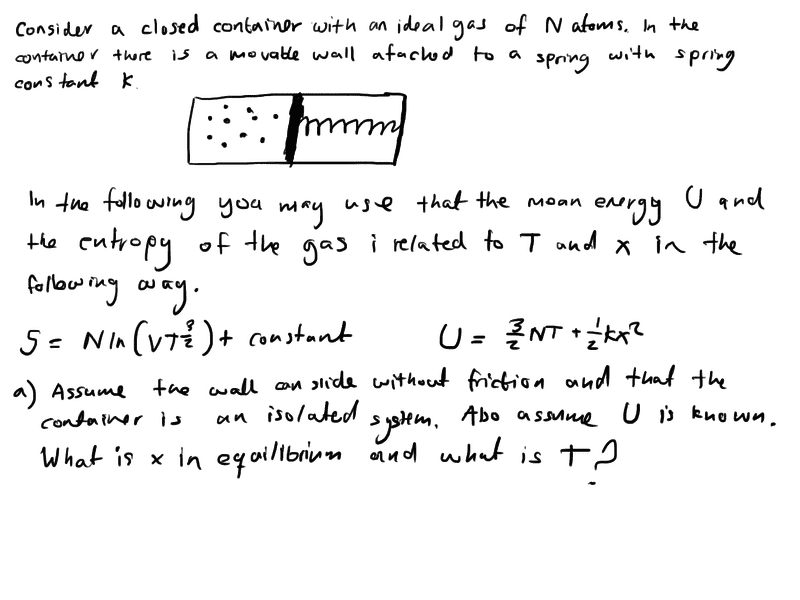 Consider a closed container with an ideal gas of N atoms. In the
container there is a movable wall afached to a spring with spring
constant k.
In the following you may use that the mean energy U and
the entropy of the gas i related to T and x in the
following way.
S = N ln (VT^{3/2}) + constant U = 3/2 NT + 1/2 kx²
a) Assume the wall can slide without friction and that the
container is an isolated system. Also assume U is known.
What is x in equilibrium and what is T?